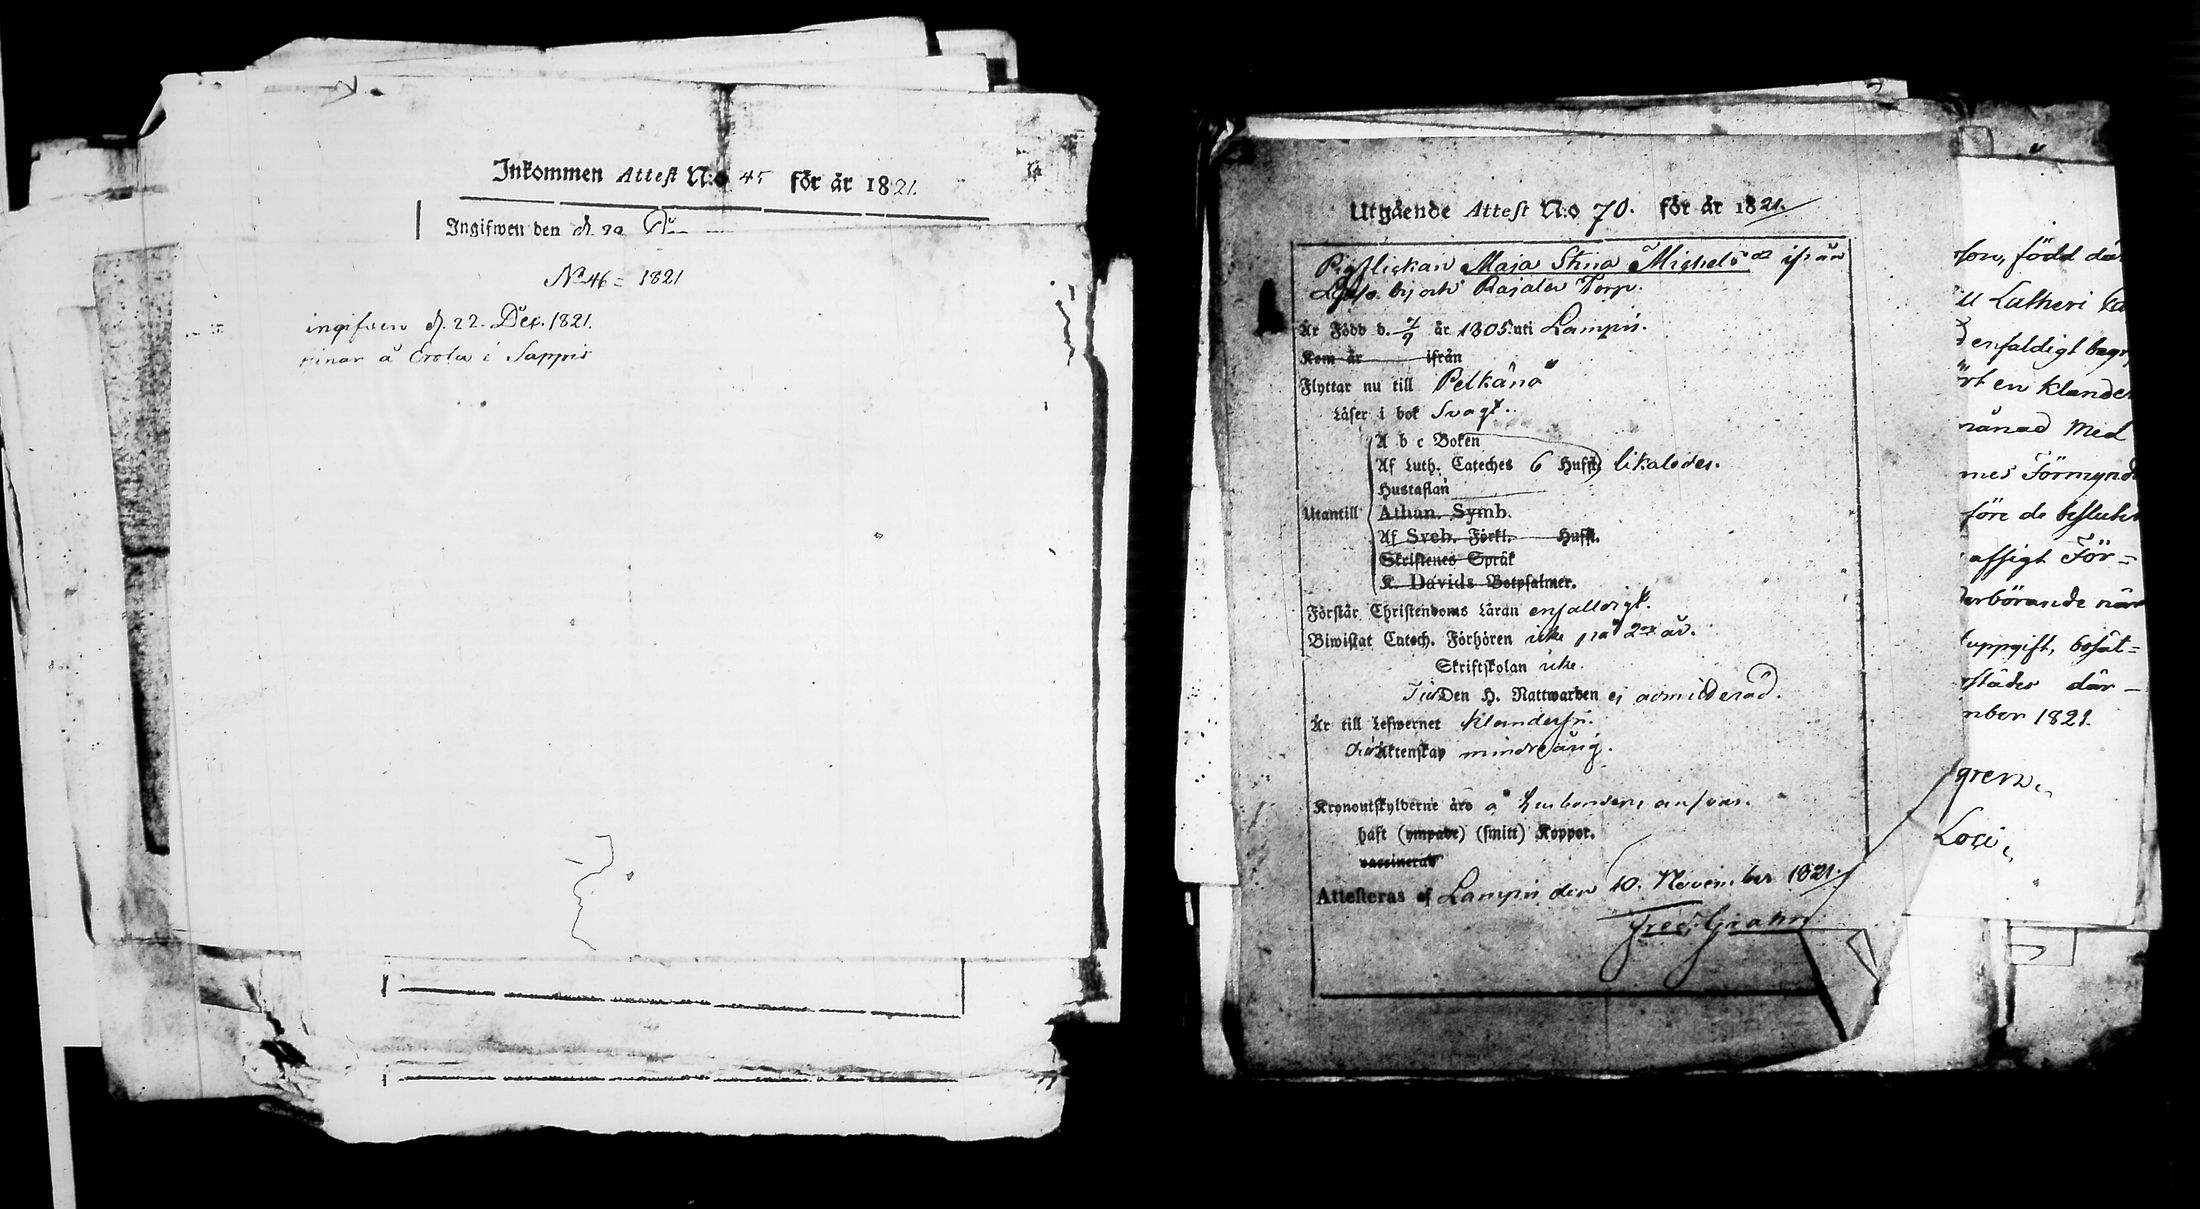 Inkommen Attest N:o 45 för år 1821.
Ingifwen den d. 22
No 46 = 1821
ingifven d. 22. Dec. 1821.
pinar å Erola i Sappis
Utgående Attest N:o 70. för år 1821.
Pigflickan Maja Stina Michelsdr ifrån
by och Rajala Torp.
Är Född d. 7/9 år 1805. uti Lampis.
Kom år ifrån
Flyttar nu till Pelkäne
Läser i bok svagt.
A b c Boken
Af Luth. Cateches 6 Hufst. likaledes.
Hustaflan
Utantill Athan. Symb.
Af Sveb. Förkl. Hufst.
Skriftenes Språk
K. Davids Botpsalmer.
Förstår Christendoms Läran enfalldigt.
Biwistat Catech. Förhören icke på 2ne år.
Skriftskolan icke.
Till Den H. Nattwarden ej admitterad.
Är till Lefwernet klanderfri.
Till Äktenskap mindreårig.
Kronoutskylderne äro å Husbondens ansvar.
haft (ympade) (smitt) Koppor.
vaccinerad
Attesteras af Lampis den 10. November 1821.
Fred. Grahn
son, född där
Lutheri
enfaldigt begr
en klander
månad Med
mes Förmynd
före de beslutn
affigt För=
börande när
uppgift, bosat=
städes där-
mber 1821.
gren.
Loci.